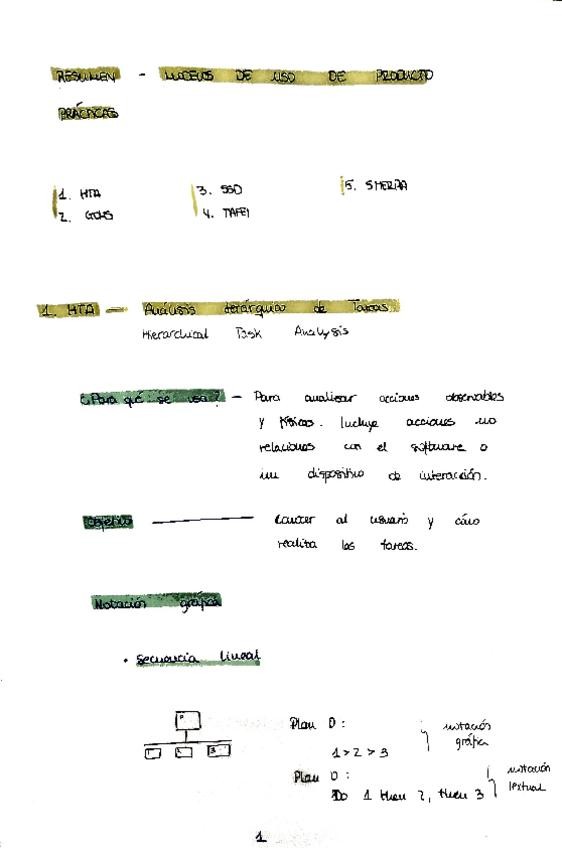 RESUMEN - MODELOS DE USO DE PRODUCTO
PRÁCTICAS
1. HTA
2. GOMS
3. SSD
4. TAFEI
5. SHERPA
1. HTA — Análisis Jerárquico de Tareas
Hierarchical Task Analysis
¿Para qué se usa? - Para analizar acciones observables
y físicas. Incluye acciones no
relaciones con el software o
un dispositivo de interacción.
Objetivo — Conocer al usuario y cómo
realiza las tareas.
Notación gráfica
• Secuencia lineal
0
1 2 3
Plan 0:
1 > 2 > 3
notación
gráfica
Plan 0:
Do 1 then 2, then 3
notación
textual
1